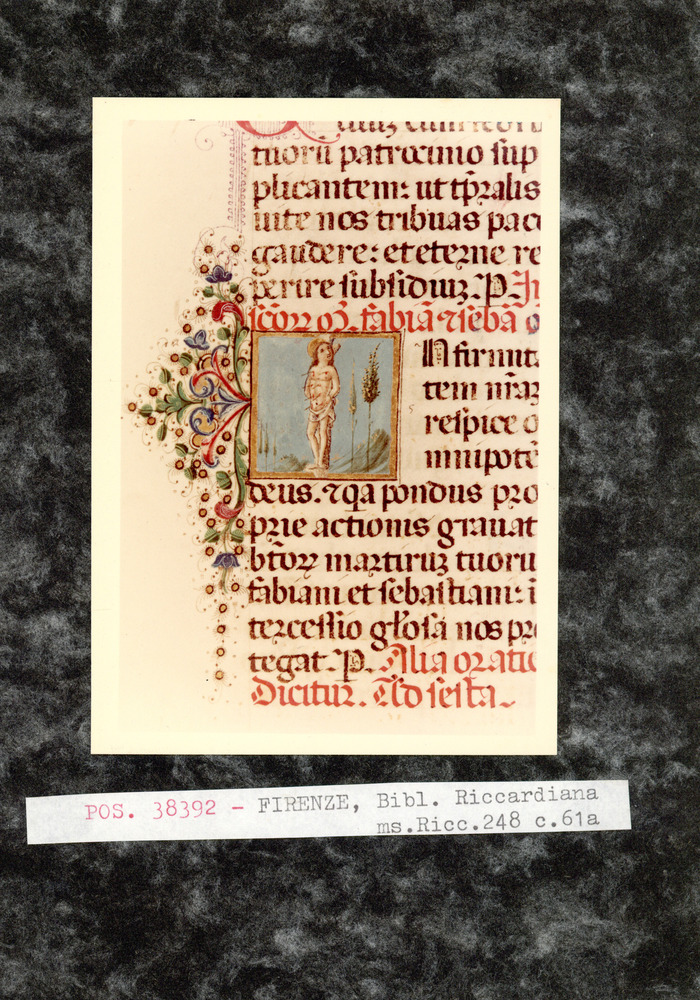 tuoru patrocinio sup
plicantem: ut tp̄ralis
uite nos tribuas pace
gaudere: et eterne re
perire subsidiuꝫ. P. In
scōꝝ oꝫ. fabiā ⁊ sebā o
Infirmita
tem nr̄aꝫ
respice o
mnipotē
deus. ⁊ qa pondus pro
prie actionis grauat
btōꝝ martiruꝫ tuoru
fabiani et sebastiani: i
tercessio gl̄osa nos pro
tegat. P. Alia oratio
Dicitur. Ad sexta~
POS. 38392 - FIRENZE, Bibl. Riccardiana
ms.Ricc.248 c.61a